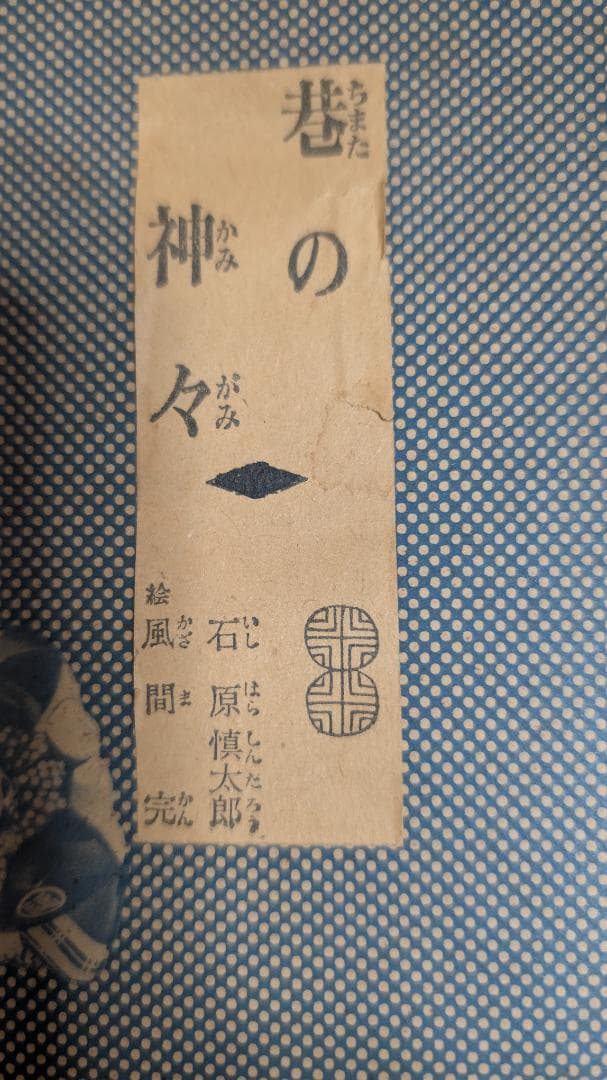 巷の
ちまた
神々
かみがみ
石原慎太郎
いしはらしんたろう
絵 風間完
かざまかん